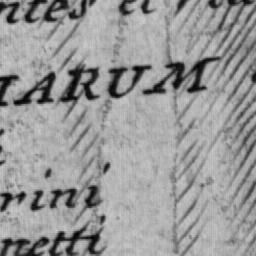 ntes et
IARUM
rini
netti